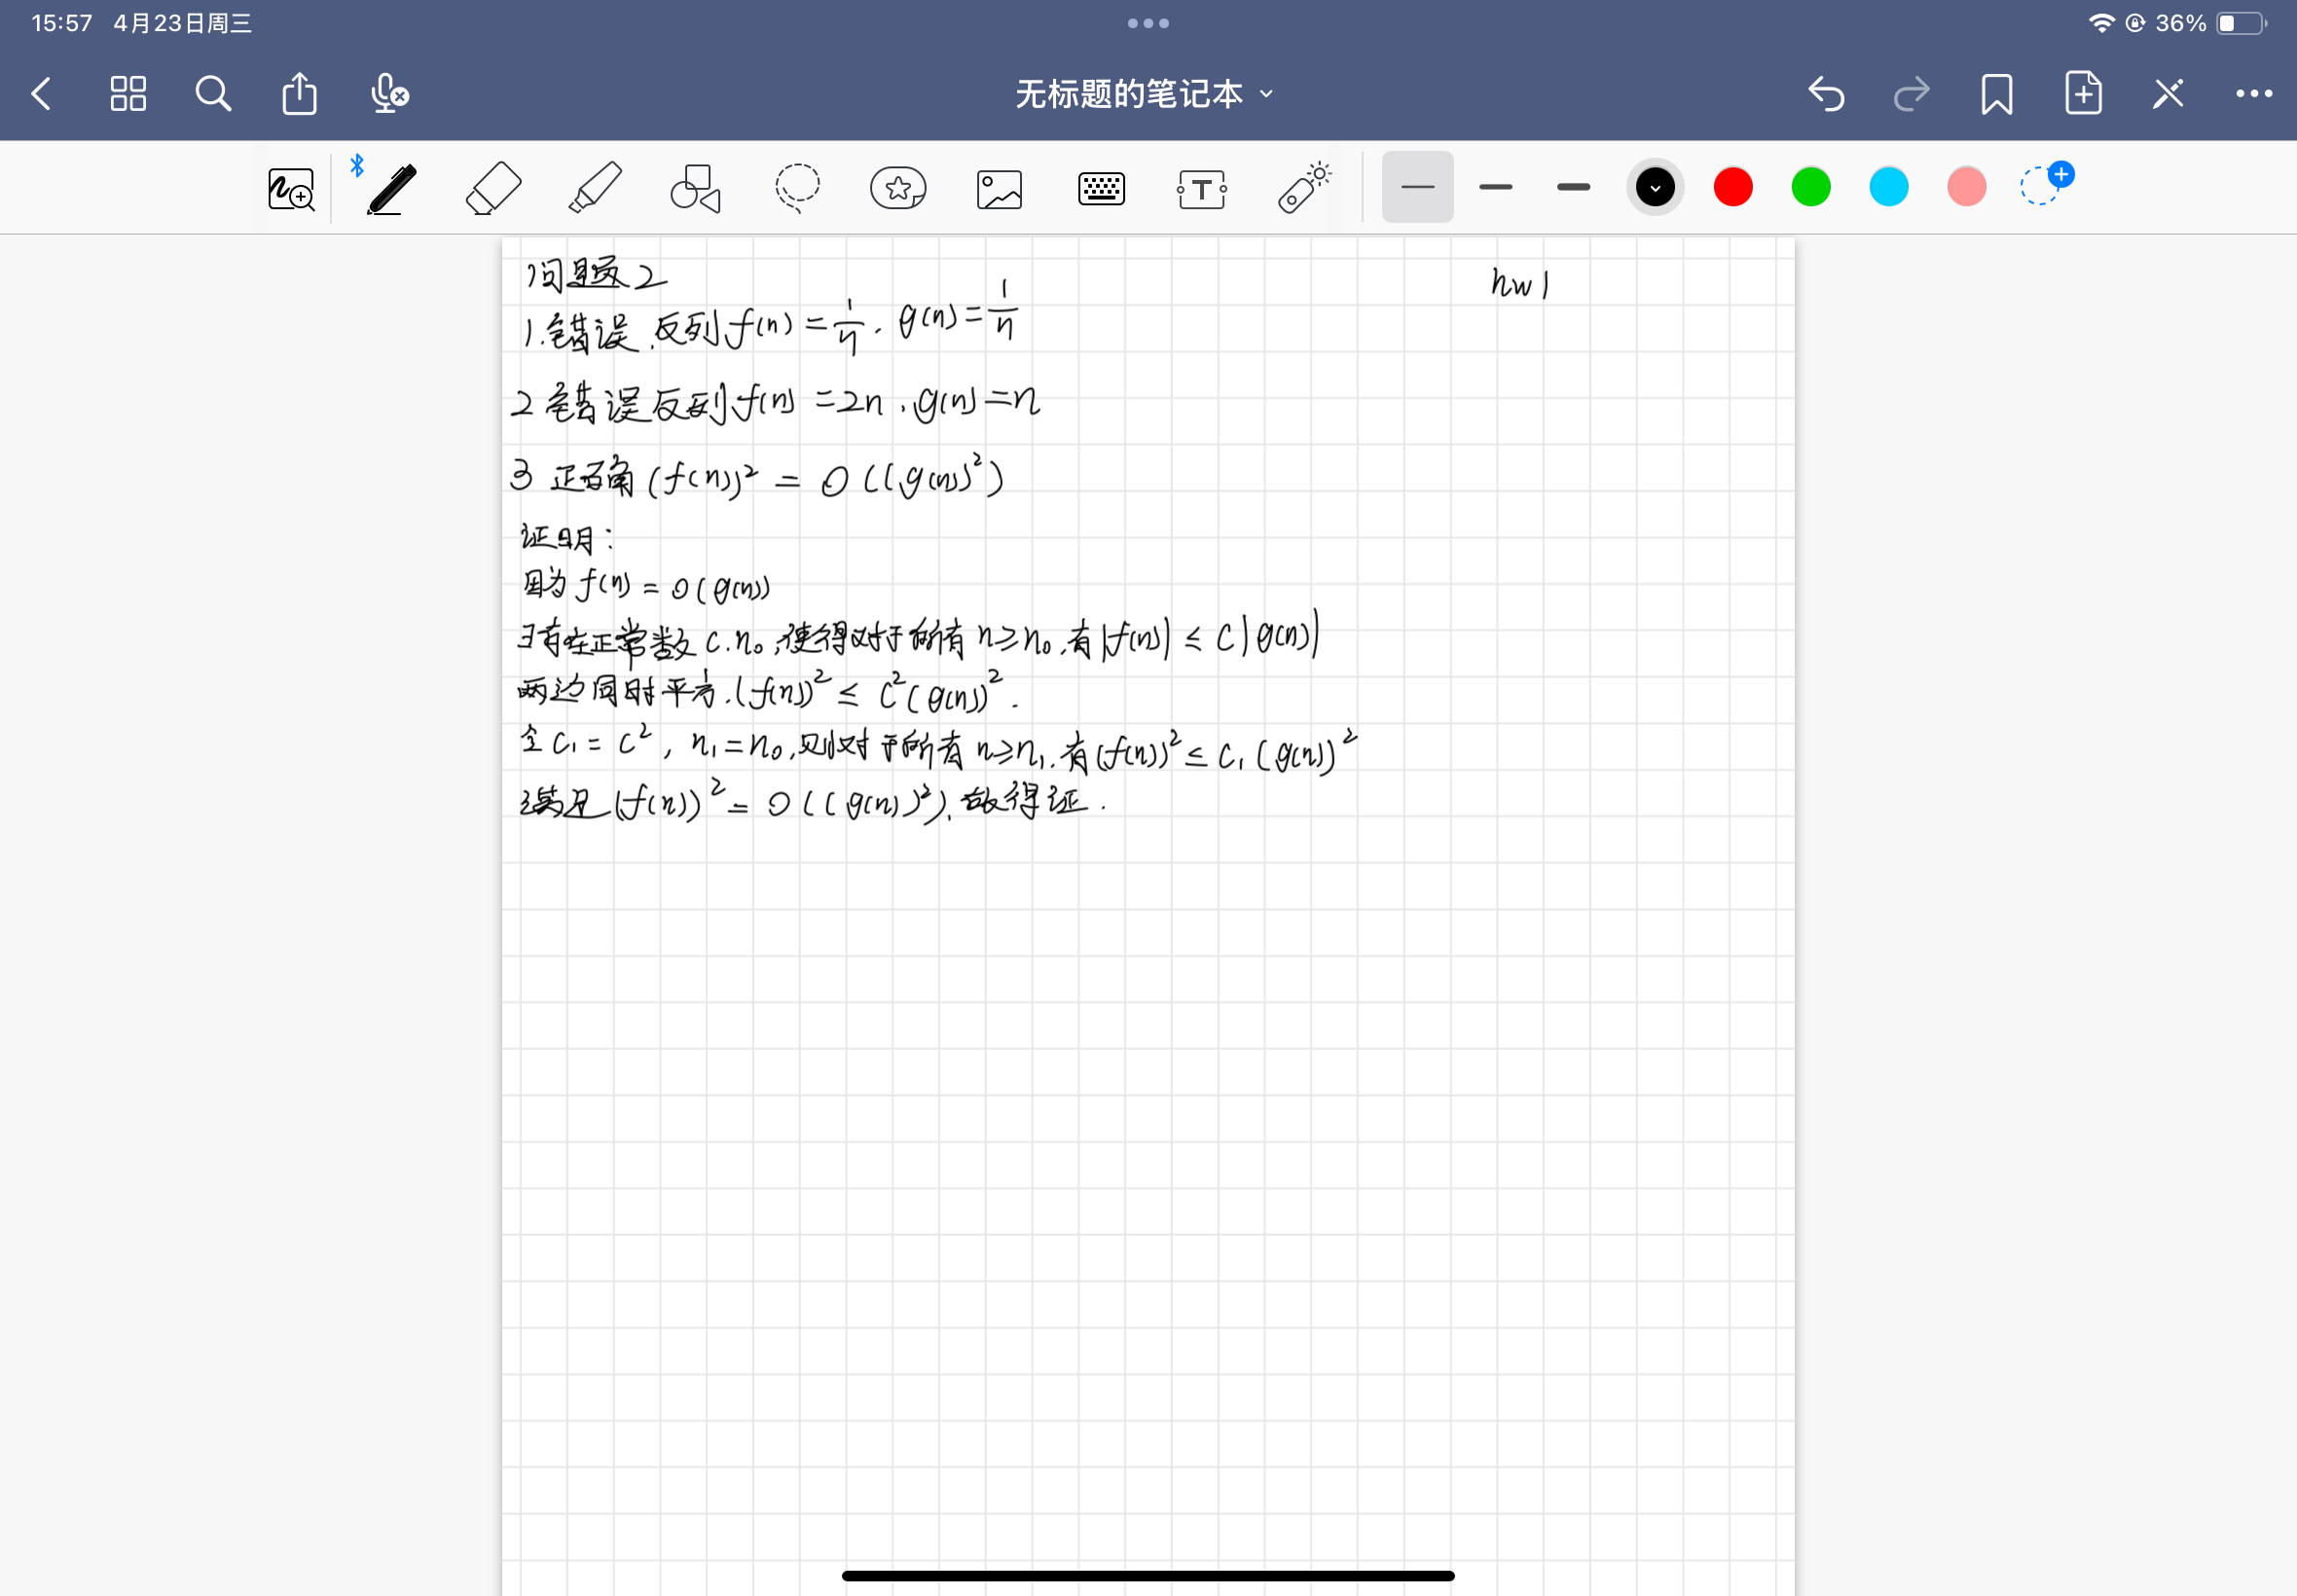 15:57 4月23日周三
36%
无标题的笔记本
问题2
hw1
1.错误.反列f(n)=1/n.g(n)=1/n
2错误反列f(n)=2n.g(n)=n
3 正确(f(n))²=O((g(n))²)
证明:
因为f(n)=O(g(n))
存在正常数c.n₀,使得对于所有n≥n₀.有|f(n)|≤C|g(n)|
两边同时平方.(f(n))²≤C²(g(n))².
令C₁=C²,n₁=n₀,则对于所有n≥n₁.有(f(n))²≤C₁(g(n))²
满足(f(n))²=O((g(n))²).故得证.